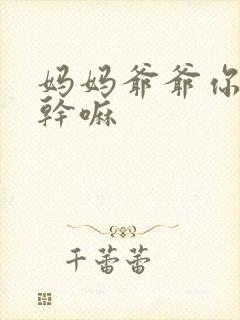 妈妈爷爷你
幹嘛
千蕾蕾